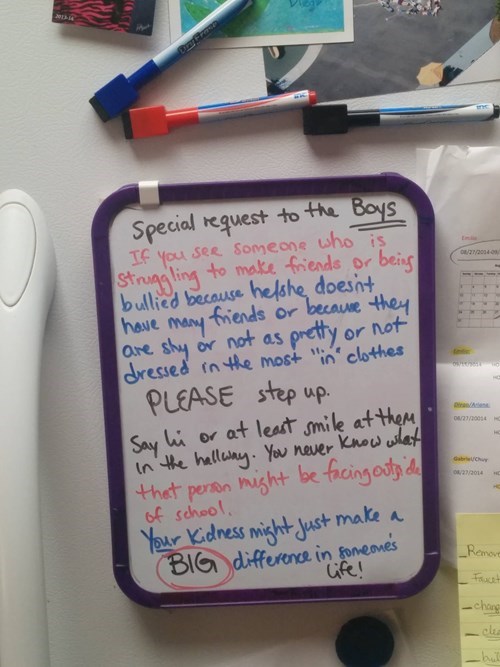 2013-14
Diego
Special request to the Boys
If you see someone who is
struggling to make friends or being
bullied because he/she doesn't
have many friends or because they
are shy or not as pretty or not
dressed in the most "in" clothes
PLEASE step up.
Say hi or at least smile at them
in the hallway. You never know what
that person might be facing outside
of school.
Your Kidness might just make a
BIG difference in someone's
life!
08/27/2014
Remove